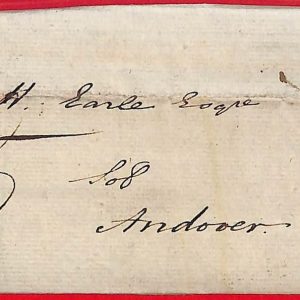 H. Earle Esqre
Andover.